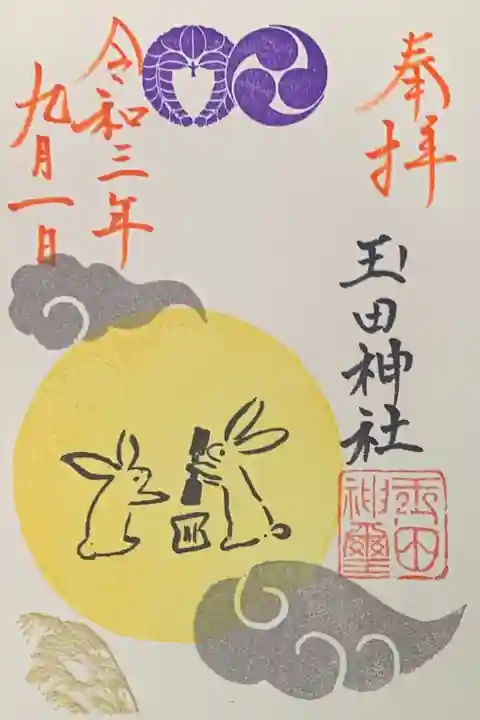 奉拝
玉田神社
玉田
神璽
令和三年
九月一日